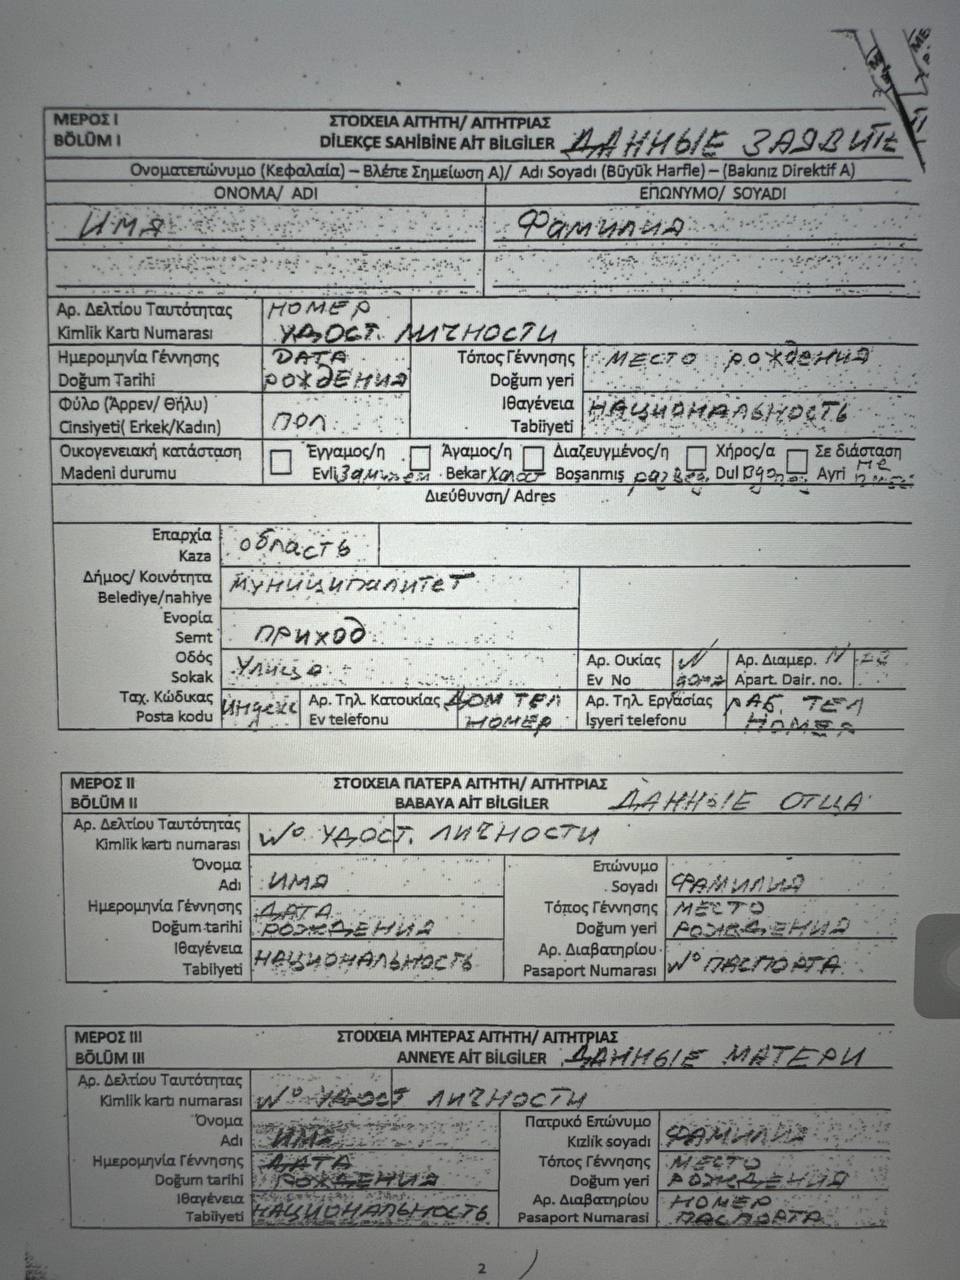 ΜΕΡΟΣ Ι ΣΤΟΙΧΕΙΑ ΑΙΤΗΤΗ/ ΑΙΤΗΤΡΙΑΣ
BÖLÜM I DİLEKÇE SAHİBİNE AİT BİLGİLER ДАННЫЕ ЗАЯВИТЕ
Ονοματεπώνυμο (Κεφαλαία) – Βλέπε Σημείωση Α)/ Adı Soyadı (Büyük Harfle) – (Bakınız Direktif A)
ΟΝΟΜΑ/ ADI ΕΠΩΝΥΜΟ/ SOYADI
ИМЯ Фамилия
Αρ. Δελτίου Ταυτότητας НОМЕР
Kimlik Kartı Numarası УДОСТ. ЛИЧНОСТИ
Ημερομηνία Γέννησης ДАТА Τόπος Γέννησης МЕСТО рождения
Doğum Tarihi РОЖДЕНИЯ Doğum yeri
Φύλο (Άρρεν/ Θήλυ) ПОЛ Ιθαγένεια НАЦИОНАЛЬНОСТЬ
Cinsiyeti( Erkek/Kadın) Tabiiyeti
Οικογενειακή κατάσταση Έγγαμος/η Άγαμος/η Διαζευγμένος/η Χήρος/α Σε διάσταση
Madeni durumu Evli Замужем Bekar Холост Boşanmış развед. Dul Ayrı
Διεύθυνση/ Adres
Επαρχία область
Kaza
Δήμος/ Κοινότητα муниципалитет
Belediye/nahiye
Ενορία
Semt приход
Οδός Улица Αρ. Οικίας N Αρ. Διαμερ. N
Sokak Ev No дома Apart. Dair. no.
Ταχ. Κώδικας Индекс Αρ. Τηλ. Κατοικίας ДОМ ТЕЛ Αρ. Τηλ. Εργασίας РАБ. ТЕЛ
Posta kodu Ev telefonu НОМЕР İşyeri telefonu НОМЕР
ΜΕΡΟΣ ΙΙ ΣΤΟΙΧΕΙΑ ΠΑΤΕΡΑ ΑΙΤΗΤΗ/ ΑΙΤΗΤΡΙΑΣ
BÖLÜM II BABAYA AİT BİLGİLER ДАННЫЕ ОТЦА
Αρ. Δελτίου Ταυτότητας N° УДОСТ. ЛИЧНОСТИ
Kimlik kartı numarası
Όνομα Επώνυμο
Adı ИМЯ Soyadı ФАМИЛИЯ
Ημερομηνία Γέννησης ДАТА Τόπος Γέννησης МЕСТО
Doğum tarihi РОЖДЕНИЯ Doğum yeri РОЖДЕНИЯ
Ιθαγένεια НАЦИОНАЛЬНОСТЬ Αρ. Διαβατηρίου
Tabilyeti Pasaport Numarası N° ПАСПОРТА
ΜΕΡΟΣ ΙΙΙ ΣΤΟΙΧΕΙΑ ΜΗΤΕΡΑΣ ΑΙΤΗΤΗ/ ΑΙΤΗΤΡΙΑΣ
BÖLÜM III ANNEYE AİT BİLGİLER ДАННЫЕ МАТЕРИ
Αρ. Δελτίου Ταυτότητας
Kimlik kartı numarası N° УДОСТ ЛИЧНОСТИ
Όνομα Πατρικό Επώνυμο
Adı ИМЯ Kızlık soyadı ФАМИЛИЯ
Ημερομηνία Γέννησης ДАТА Τόπος Γέννησης МЕСТО
Doğum tarihi РОЖДЕНИЯ Doğum yeri РОЖДЕНИЯ
Ιθαγένεια Αρ. Διαβατηρίου НОМЕР
Tabiiyeti НАЦИОНАЛЬНОСТЬ Pasaport Numarasi ПАСПОРТА
2